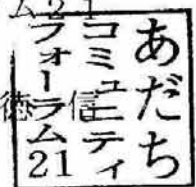 あだち
コミュニティ
フォーラム21
ム21
徳信